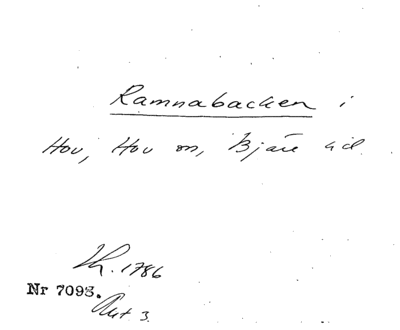 Ramnabacken i
Hov, Hov sn, Bjäre hd.
Lh. 1786
Nr 7093.
Akt 3.